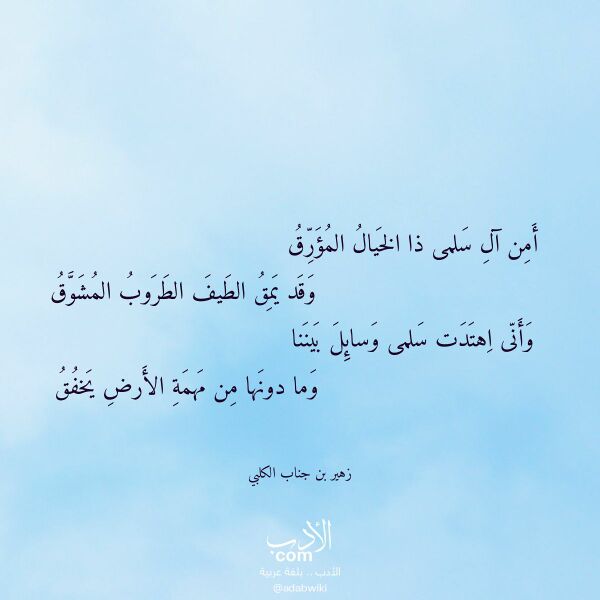 أَمِن آلِ سَلمى ذا الخَيالُ المُؤَرِّقُ
وَقَد يَمِقُ الطَيفَ الطَروبُ المُشَوَّقُ
وَأَنّى اِهتَدَت سَلمى وَسائِلَ بَينَنا
وَما دونَها مِن مَهمَةِ الأَرضِ يَخفُقُ
زهير بن جناب الكلبي
الأدب
com
الأدب .. بلغة عربية
@adabwiki